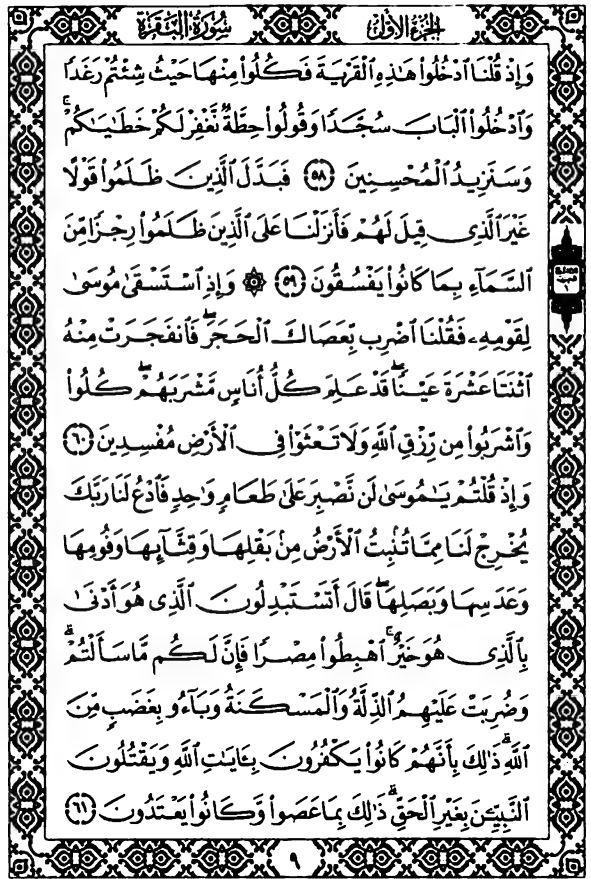 سُورَةُ الْبَقَرَةِ الجُزْءُ الأَوَّلُ
وَإِذْ قُلْنَا ٱدْخُلُوا۟ هَٰذِهِ ٱلْقَرْيَةَ فَكُلُوا۟ مِنْهَا حَيْثُ شِئْتُمْ رَغَدًا
وَٱدْخُلُوا۟ ٱلْبَابَ سُجَّدًا وَقُولُوا۟ حِطَّةٌ نَّغْفِرْ لَكُمْ خَطَٰيَٰكُمْ ۚ
وَسَنَزِيدُ ٱلْمُحْسِنِينَ ٥٨ فَبَدَّلَ ٱلَّذِينَ ظَلَمُوا۟ قَوْلًا
غَيْرَ ٱلَّذِى قِيلَ لَهُمْ فَأَنزَلْنَا عَلَى ٱلَّذِينَ ظَلَمُوا۟ رِجْزًا مِّنَ
ٱلسَّمَآءِ بِمَا كَانُوا۟ يَفْسُقُونَ ٥٩ ۞ وَإِذِ ٱسْتَسْقَىٰ مُوسَىٰ
لِقَوْمِهِۦ فَقُلْنَا ٱضْرِب بِّعَصَاكَ ٱلْحَجَرَ ۖ فَٱنفَجَرَتْ مِنْهُ
ٱثْنَتَا عَشْرَةَ عَيْنًا ۖ قَدْ عَلِمَ كُلُّ أُنَاسٍ مَّشْرَبَهُمْ ۖ كُلُوا۟
وَٱشْرَبُوا۟ مِن رِّزْقِ ٱللَّهِ وَلَا تَعْثَوْا۟ فِى ٱلْأَرْضِ مُفْسِدِينَ ٦٠
وَإِذْ قُلْتُمْ يَٰمُوسَىٰ لَن نَّصْبِرَ عَلَىٰ طَعَامٍ وَٰحِدٍ فَٱدْعُ لَنَا رَبَّكَ
يُخْرِجْ لَنَا مِمَّا تُنۢبِتُ ٱلْأَرْضُ مِنۢ بَقْلِهَا وَقِثَّآئِهَا وَفُومِهَا
وَعَدَسِهَا وَبَصَلِهَا ۖ قَالَ أَتَسْتَبْدِلُونَ ٱلَّذِى هُوَ أَدْنَىٰ
بِٱلَّذِى هُوَ خَيْرٌ ۚ ٱهْبِطُوا۟ مِصْرًا فَإِنَّ لَكُم مَّا سَأَلْتُمْ ۗ
وَضُرِبَتْ عَلَيْهِمُ ٱلذِّلَّةُ وَٱلْمَسْكَنَةُ وَبَآءُو بِغَضَبٍ مِّنَ
ٱللَّهِ ۗ ذَٰلِكَ بِأَنَّهُمْ كَانُوا۟ يَكْفُرُونَ بِـَٔايَٰتِ ٱللَّهِ وَيَقْتُلُونَ
ٱلنَّبِيِّـۧنَ بِغَيْرِ ٱلْحَقِّ ۗ ذَٰلِكَ بِمَا عَصَوا۟ وَّكَانُوا۟ يَعْتَدُونَ ٦١
٩